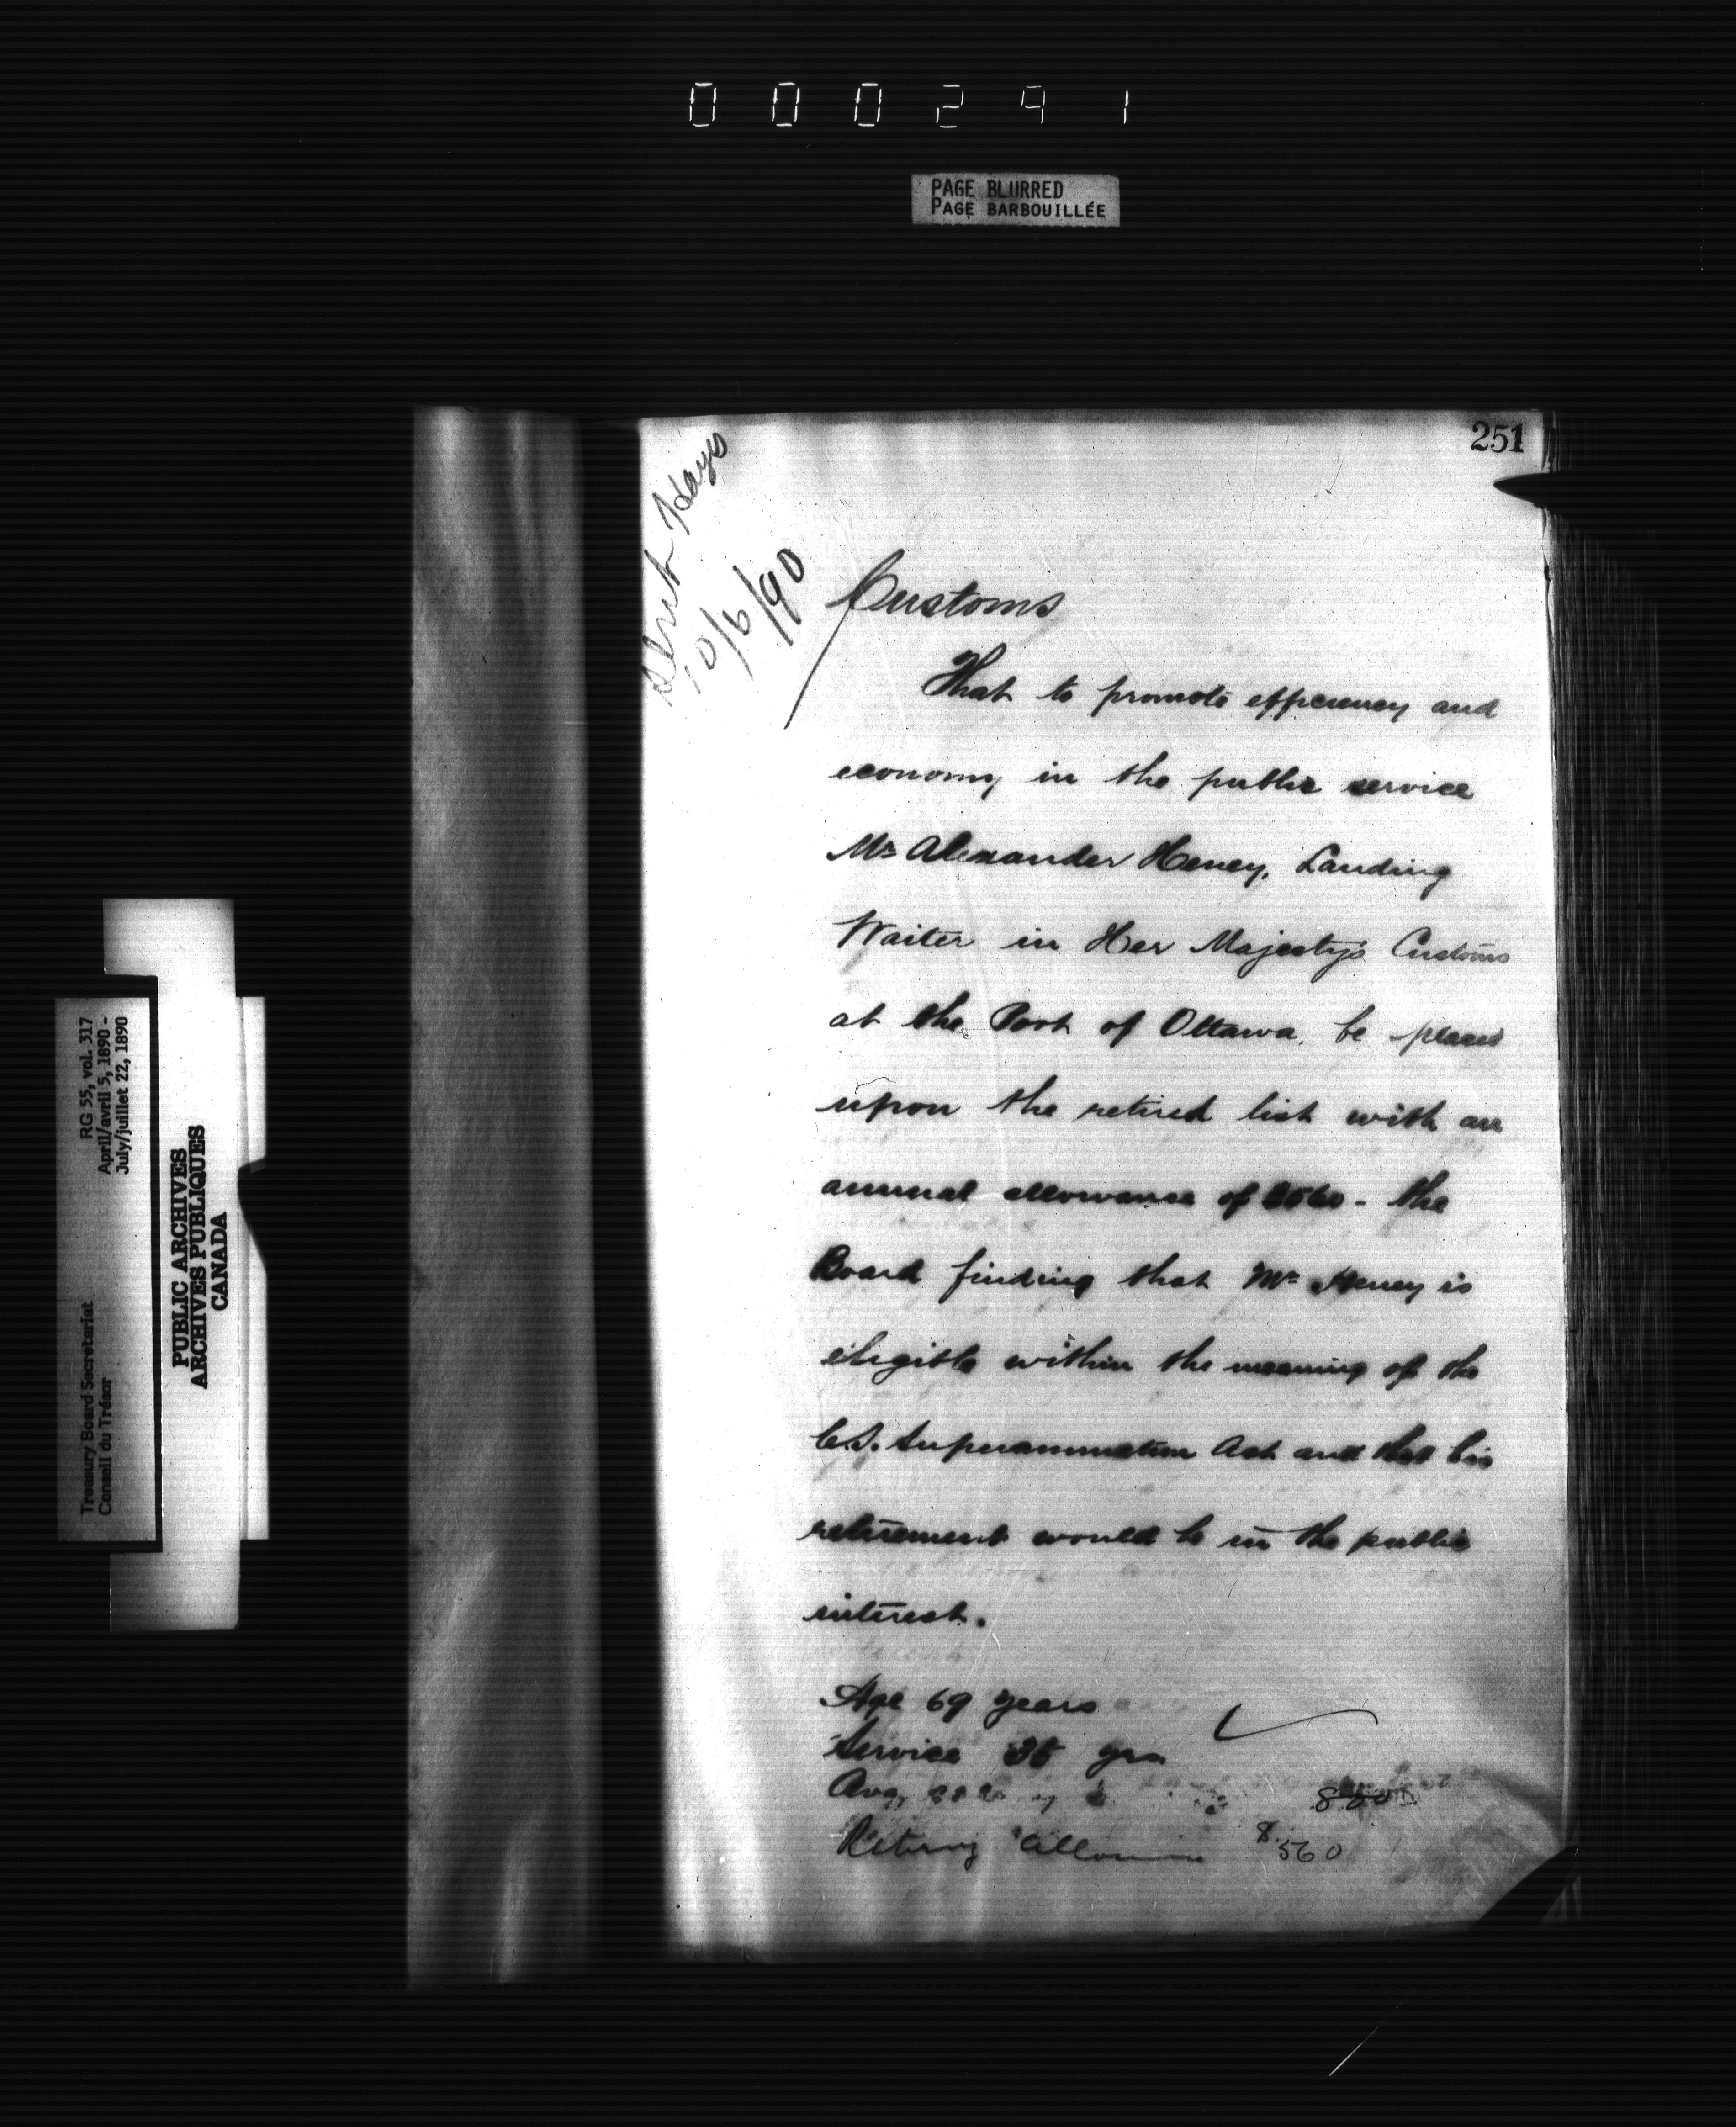 000291
PAGE BLURRED
PAGE BARBOUILLÉE
251
10/6/90
Customs
That to promote efficiency and
economy in the public service
Mr Alexander Heney, Landing
Waiter in Her Majesty's Customs
at the Port of Ottawa, be placed
upon the retired list with an
annual allowance of $560 - the
Board finding that Mr Heney is
eligible within the meaning of the
C.S. Superannuation Act and that his
retirement would be in the public
interest.
Age 69 years
Service 35 yrs
Avg. 800
Retiring Allowance $560
RG 55, vol. 317
April/avril 5, 1890 -
July/juillet 22, 1890
Treasury Board Secretariat
Conseil du Trésor
PUBLIC ARCHIVES
ARCHIVES PUBLIQUES
CANADA